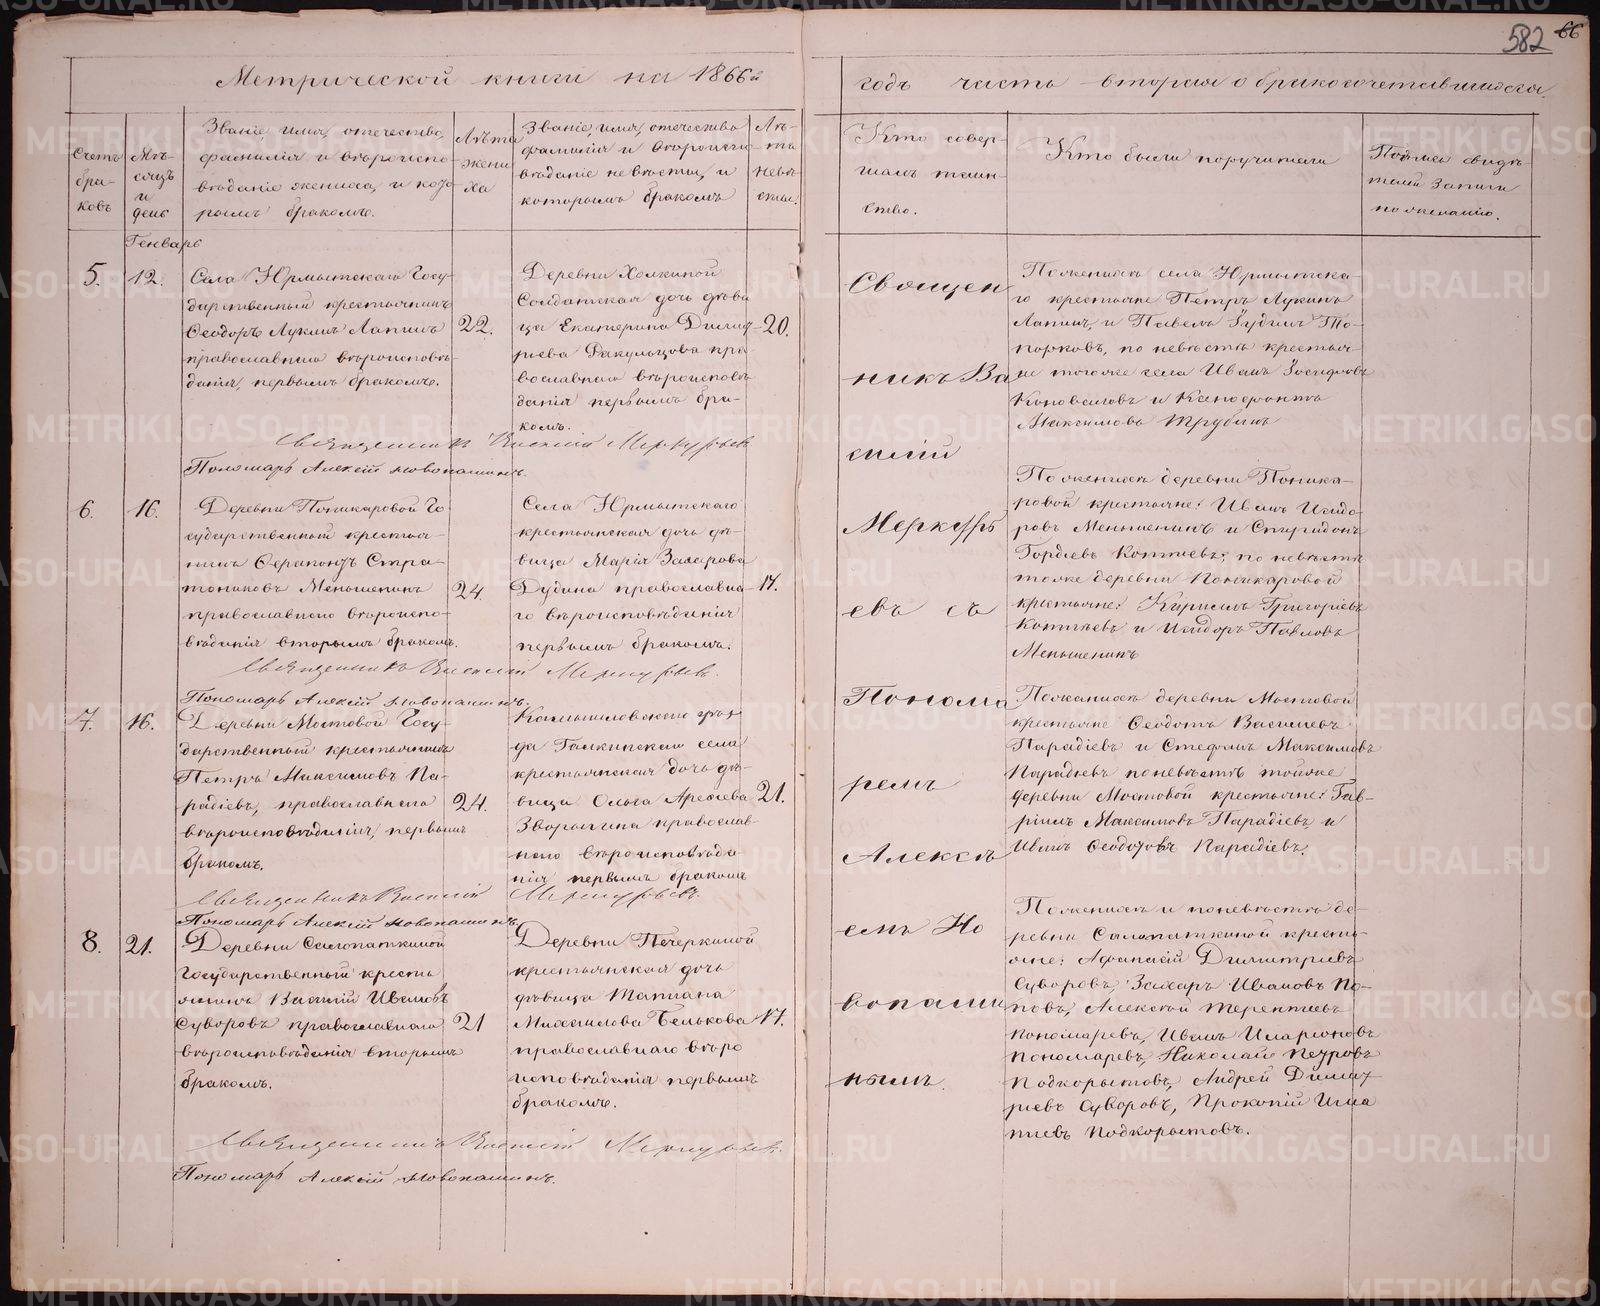 582 66
Метрической книги на 1866й
годъ часть вторая о бракосочетавшихся.
Счетъ
бра-
ковъ
Мѣ-
сяцъ
и
день
Званіе, имя, отечество,
фамилія и вѣроиспо-
вѣданіе жениха, и кото
рымъ бракомъ.
Лѣта
жени
ха
Званіе, имя, отечество
фамилія и вѣроиспо-
вѣданіе невѣсты, и
которымъ бракомъ
Лѣ-
та
невѣ-
сты.
Кто совер-
шалъ таин-
ство.
Кто были поручители
Подпись свидѣ-
телей записи
по желанію.
Генварь
5.
12.
Села Юрмытскаго Госу-
дарственный крестьянинъ
Ѳеодоръ Лукинъ Лапинъ
православнаго вѣроисповѣ-
данія, первымъ бракомъ.
22.
Деревни Холкиной
Солдатская дочь дѣви
ца Екатерина Димит-
ріева Факульцова пра
вославнаго вѣроисповѣ
данія первымъ бра-
комъ.
20.
По женихѣ села Юрмытска-
го крестьяне Петръ Лукинъ
Лапинъ, и Павелъ Іудинъ То-
порковъ, по невѣстѣ крестья-
не тогоже села Иванъ Іосифовъ
Коноваловъ и Ксенофонтъ
Максимовъ Трубинъ
Священникъ Василій Меркурьевъ
Пономарь Алексій Новопашинъ.
6.
16.
Деревни Поникаровой Го
сударственный крестья-
нинъ Ѳерапонтъ Стра-
тониковъ Меньшенинъ
православнаго вѣроиспо-
вѣданія вторымъ бракомъ.
24.
Села Юрмытскаго
крестьянская дочь дѣ-
вица Марія Захарова
Дудина православна-
го вѣроисповѣданія
первымъ бракомъ.
17.
По женихѣ деревни Поника-
ровой крестьяне: Иванъ Исидо-
ровъ Меньшенинъ и Спиридонъ
Гордіевъ Коптяевъ; по невѣстѣ
тоже деревни Поникаровой
крестьяне: Кирилъ Григорьевъ
Коптяевъ и Исидоръ Павловъ
Меньшенинъ
Священникъ Василій Меркурьевъ.
Пономарь Алексій Новопашинъ.
7.
16.
Деревни Мостовой Госу-
дарственный крестьянинъ
Петръ Максимовъ Па-
радіевъ, православнаго
вѣроисповѣданія, первымъ
бракомъ.
24.
Камышловскаго уѣз-
да Галкинскаго села
крестьянская дочь дѣ-
вица Ольга Арсеева
Зворыгина православ-
наго вѣроисповѣда-
нія первымъ бракомъ
21.
По женихѣ деревни Мостовой
крестьяне Ѳеодотъ Васильевъ
Парадіевъ и Стефанъ Максимовъ
Парадіевъ по невѣстѣ тойже
деревни Мостовой крестьяне: Гав-
ріилъ Максимовъ Парадіевъ, и
Иванъ Ѳеодотовъ Парадіевъ.
Священникъ Василій Меркурьевъ.
Пономарь Алексій Новопашинъ.
8.
21.
Деревни Салопаткиной
Государственный кресть
янинъ Василій Ивановъ
Суворовъ православнаго
вѣроисповѣданія вторымъ
бракомъ.
21
Деревни Печеркиной
крестьянская дочь
дѣвица Татіана
Михаилова Белькова
православнаго вѣро
исповѣданія первымъ
бракомъ.
17.
По женихѣ и по невѣстѣ де-
ревни Салопаткиной кресть-
яне: Афанасій Димитріевъ
Суворовъ, Захаръ Ивановъ По-
повъ, Алексѣй Терентьевъ
Пономаревъ, Иванъ Иларіоновъ
Пономаревъ, Николай Петровъ
Подкорытовъ, Андрей Димит-
ріевъ Суворовъ, Прокопій Игна
тіевъ Подкорытовъ.
Священникъ Василій Меркурьевъ.
Пономарь Алексій Новопашинъ.
Священ
никъ Ва
силій
Меркурь
евъ съ
Понома
ремъ
Алексѣ
емъ Но
вопаши
нымъ.
METRIKI.GASO-URAL.RU